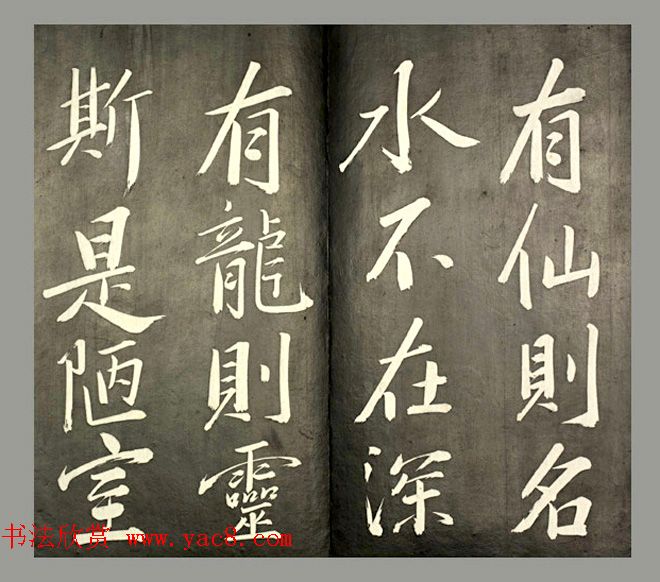 有仙則名
水不在深
有龍則靈
斯是陋室
书法欣赏 www.yac8.com